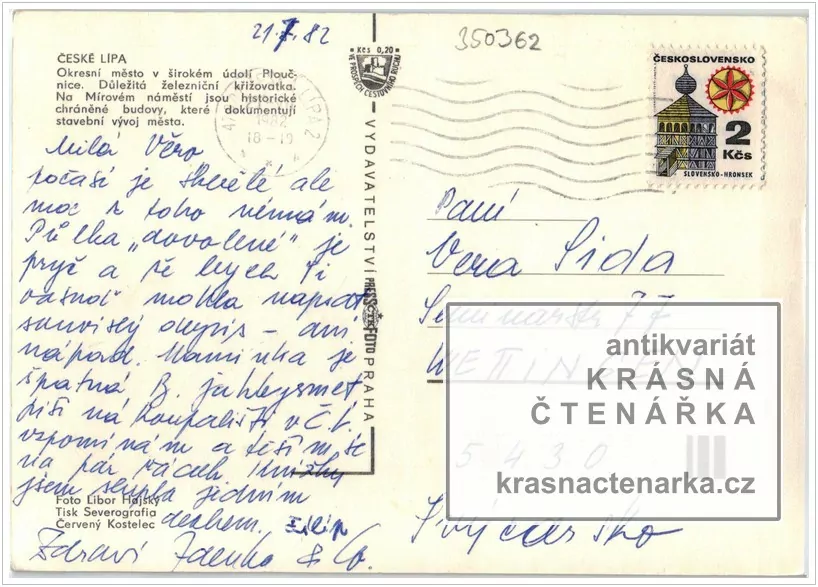 21.7.82
350362
ČESKÉ LÍPA
Okresní město v širokém údolí Plouč-
nice. Důležitá železniční křižovatka.
Na Mírovém náměstí jsou historické
chráněné budovy, které dokumentují
stavební vývoj města.
Kčs 0,20
VE PROSPĚCH CESTOVNÍHO RUCHU
LÍPA 2
1982
18-19
ČESKOSLOVENSKO
2
Kčs
SLOVENSKO-HRONSEK
Milá Věro
počasí je skvělé ale
moc z toho nemám.
Půlka „dovolené" je
pryč a že bych Ti
mohla napsat
souvislý dopis – ani
nápad. Maminka je
špatná
na koupališti v Č.L.
vzpomínám a těším se
na pár řádek
jsem jedním
dechem.
Zdraví Zdenka & Co.
VYDAVATELSTVÍ PRESSFOTO PRAHA
Foto Libor Hajský
Tisk Severografia
Červený Kostelec
Paní
Vera Sida
77
WETTINGEN
5430
Švýcarsko
antikvariát
KRÁSNÁ
ČTENÁŘKA
krasnactenarka.cz